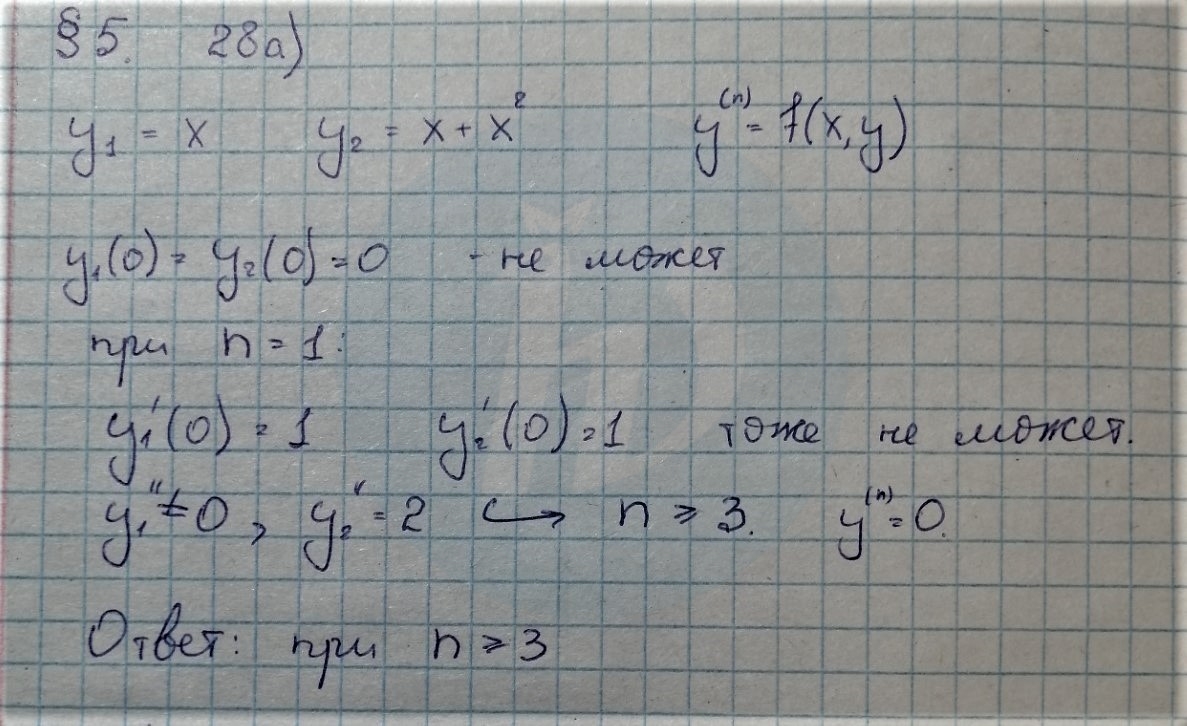 §5. 28а)
y₁ = x y₂ = x + x² y⁽ⁿ⁾ = f(x, y)
y₁(0) = y₂(0) = 0 - не может
при n = 1:
y₁'(0) = 1 y₂'(0) = 1 тоже не может.
y₁'' = 0, y₂'' = 2 ↪ n ⩾ 3. y⁽ⁿ⁾ = 0.
Ответ: при n ⩾ 3